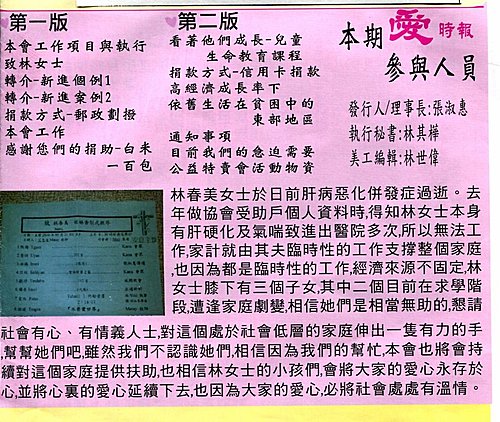 第一版
本會工作項目與執行
致林女士
轉介-新進個例1
轉介-新進案例2
捐款方式-郵政劃撥
本會工作
感謝您們的捐助-白米
一百包
第二版
看著他們成長-兒童
生命教育課程
捐款方式-信用卡捐款
高經濟成長率下
依舊生活在貧困中的
東部地區
通知事項
目前我們的急迫需要
公益特賣會活動物資
本期愛時報
參與人員
發行人/理事長:張淑惠
執行秘書:林其樺
美工編輯:林世偉
林春美女士於日前肝病惡化併發症過逝。去
年做協會受助戶個人資料時,得知林女士本身
有肝硬化及氣喘致進出醫院多次,所以無法工
作,家計就由其夫臨時性的工作支撐整個家庭
,也因為都是臨時性的工作,經濟來源不固定,林
女士膝下有三個子女,其中二個目前在求學階
段,遭逢家庭劇變,相信她們是相當無助的,懇請
社會有心、有情義人士,對這個處於社會低層的家庭伸出一隻有力的手
,幫幫她們吧,雖然我們不認識她們,相信因為我們的幫忙,本會也將會持
續對這個家庭提供扶助,也相信林女士的小孩們,會將大家的愛心永存於
心,並將心裏的愛心延續下去,也因為大家的愛心,必將社會處處有溫情。